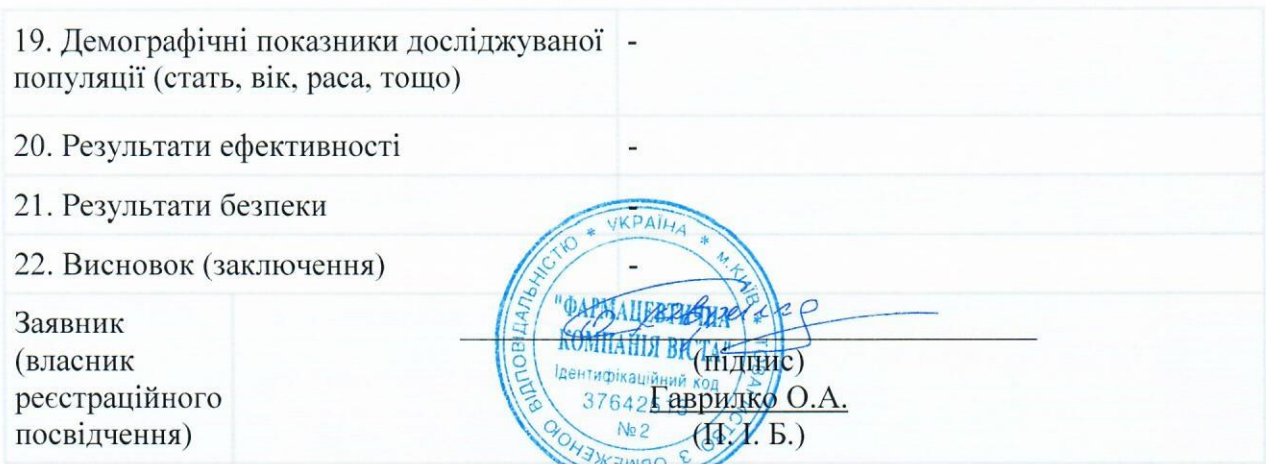 19. Демографічні показники досліджуваної -
популяції (стать, вік, раса, тощо)
20. Результати ефективності -
21. Результати безпеки -
22. Висновок (заключення) -
Заявник
(власник
реєстраційного
посвідчення)
(підпис)
Гаврилко О.А.
(П. І. Б.)
* УКРАЇНА * м.КИЇВ * ТОВАРИСТВО З ОБМЕЖЕНОЮ ВІДПОВІДАЛЬНІСТЮ
"ФАРМАЦЕВТИЧНА
КОМПАНІЯ ВІСТА"
Ідентифікаційний код
№2